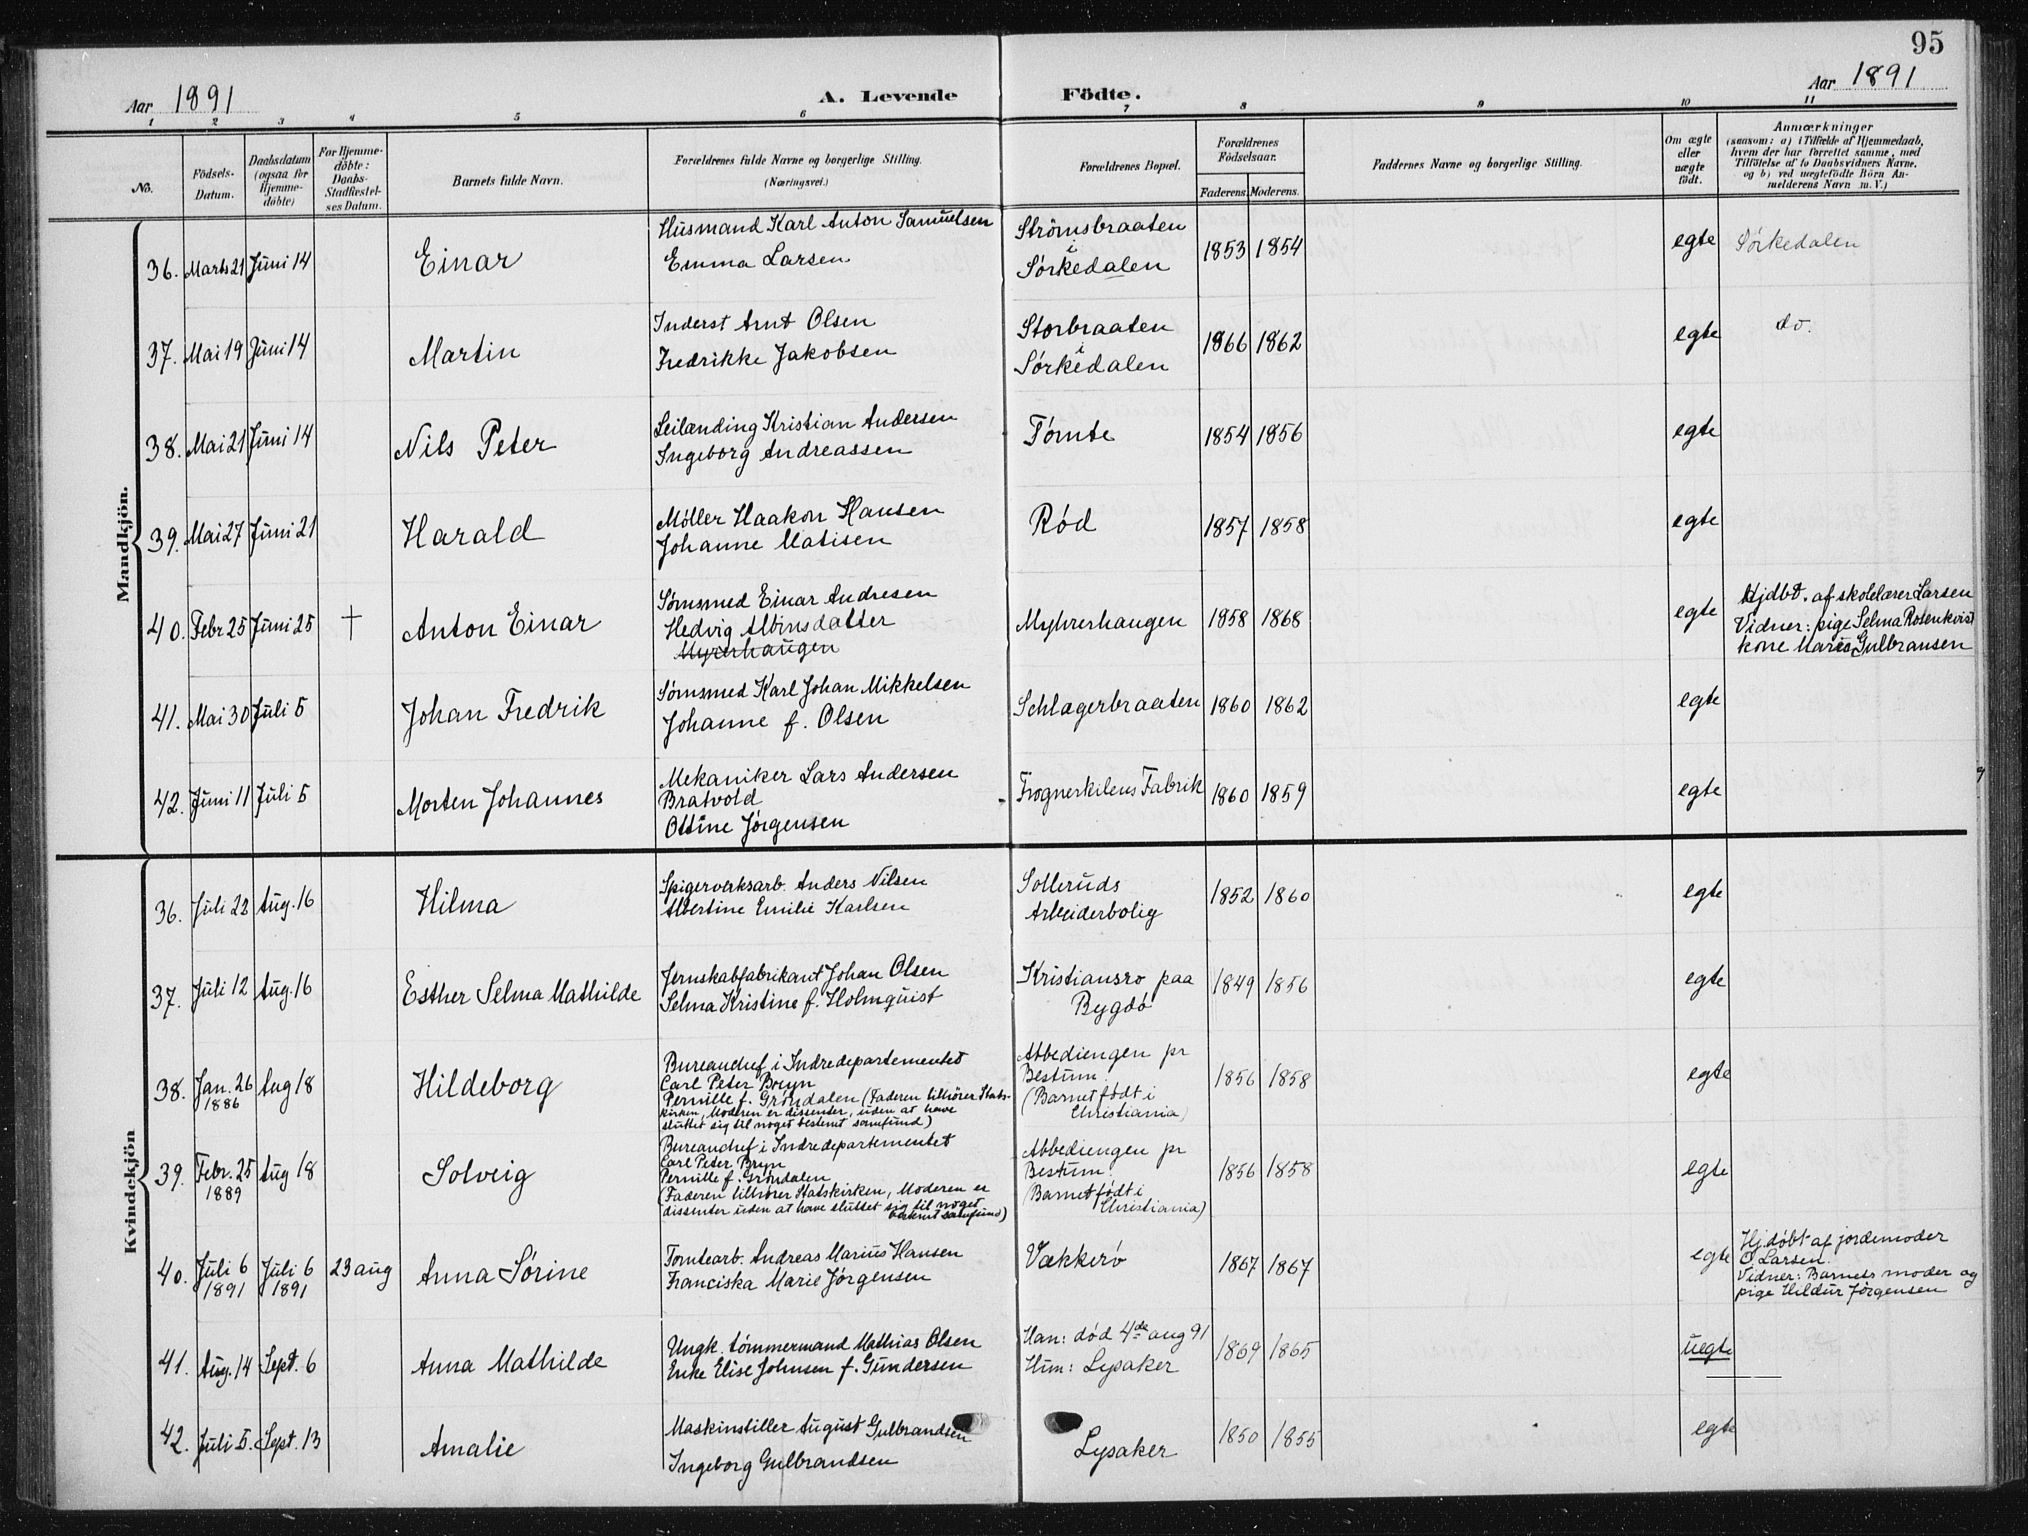 95
Aar 1891
A. Levende Födte.
Aar 1891
1 2 3 4 5 6 7 8 9 10 11
No.
Födsels-Datum.
Daabsdatum (ogsaa for Hjemme-döbte)
For Hjemme-döbte: Daabs-Stadfæstelses Datum.
Barnets fulde Navn.
Forældrenes fulde Navne og borgerlige Stilling. (Næringsvei.)
Forældrenes Bopæl.
Forældrenes Födselsaar.
Faderens. Moderens.
Faddernes Navne og borgerlige Stilling.
Om ægte eller uægte födt.
Anmærkninger
(saasom: a) i Tilfælde af Hjemmedaab,
hvem der har forrettet samme, med
Tilföielse af to Daabsvidners Navne.
og b) ved uægtefödte Börn An-
melderens Navn m. V.)
Mandkjön.
36. Marts 21 Juni 14 Einar
Husmand Karl Anton Samuelsen
Emma Larsen
Strømsbraaten
i
Sørkedalen
1853 1854 egte Sørkedalen
37. Mai 19 Juni 14 Martin
Inderst Arnt Olsen
Fredrikke Jakobsen
Storbraaten
i
Sørkedalen
1866 1862 egte do.
38. Mai 21 Juni 14 Nils Peter
Leilænding Kristian Andersen
Ingeborg Andreassen
Tømte 1854 1856 egte
39. Mai 27 Juni 21 Harald
Møller Haakon Hansen
Johanne Matisen
Rød 1857 1858 egte
40. Febr 25 Juni 25 † Anton Einar
Sømsmed Einar Andresen
Hedvig Albinsdatter
Myrerhaugen
Myhrerhaugen 1858 1868 egte
Hjdbt. af skolelærer Larsen
Vidner: pige Selma Rosenkvist
kone Maria Gulbransen
41. Mai 30 Juli 5 Johan Fredrik
Sømsmed Karl Johan Mikkelsen
Johanne f. Olsen
Schlagerbraaten 1860 1862 egte
42. Juni 11 Juli 5 Morten Johannes
Mekaniker Lars Andersen
Bratvold
Ottine Jørgensen
Frognerkilens Fabrik 1860 1859 egte
Kvindekjön
36. Juli 22 Aug. 16 Hilma
Spigerverksarb. Anders Nilsen
Albertine Emilie Karlsen
Solleruds
Arbeiderbolig
1852 1860 egte
37. Juli 12 Aug. 16 Esther Selma Mathilde
Jernskabfabrikant Johan Olsen
Selma Kristine f. Holmquist
Kristiansro paa
Bygdö
1849 1856 egte
38. Jan. 26 1886 Aug 18 Hildeborg
Bureauchef i Indredepartementet
Carl Peter Bryn
Pernille f. Grøndalen (Faderen tilhører Stats-
kirken, Moderen er dissenter, uden at have
sluttet sig til noget bestemt samfund)
Abbediengen pr
Bestum.
(Barnet født i
Christiania)
1856 1858 egte
39. Febr. 25 1889 Aug 18 Solveig
Bureauchef i Indredepartementet
Carl Peter Bryn
Pernille f. Grøndalen
(Faderen tilhører Statskirken, Moderen er
dissenter uden at have sluttet sig til noget
bestemt samfund)
Abbediengen pr
Bestum.
(Barnet født i
Christiania)
1856 1858 egte
40. Juli 6 1891 Juli 6 1891 23 aug Anna Sørine
Tomtearb. Andreas Marius Hansen
Franciska Marie Jørgensen
Vækkerö 1867 1867 egte
Hj.døbt af jordemoder
O. Larsen.
Vidner: Barnets moder og
pige Hildur Jørgensen
41. Aug. 14 Sept. 6 Anna Mathilde
Ungk. tømmermand Mathias Olsen
Enke Elise Johnsen f. Gundersen
Han: död 4de aug 91
Hun: Lysaker
1869 1865 uegte
42. Juli 5. Sept. 13 Amalie
Maskinstiller August Gulbrandsen
Ingeborg Gulbrandsen
Lysaker 1850 1855 egte